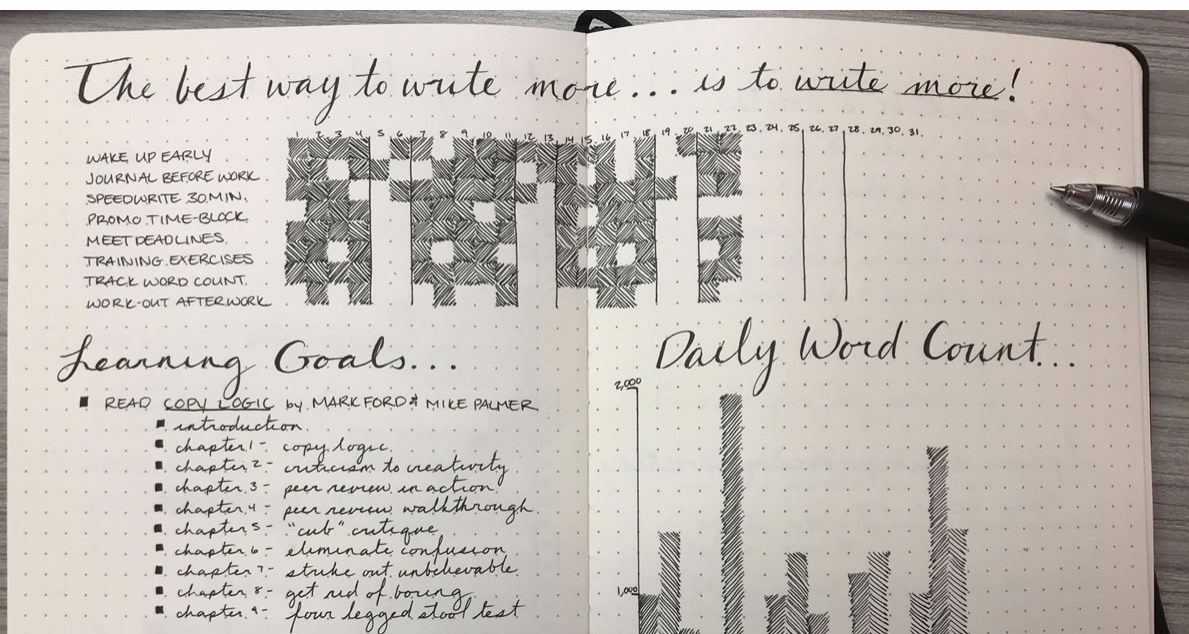 The best way to write more... is to write more!
1 2 3 4 5 6 7 8 9 10 11 12 13 14 15 16 17 18 19 20 21 22 23. 24. 25. 26. 27. 28. 29. 30. 31.
WAKE UP EARLY
JOURNAL BEFORE WORK
SPEEDWRITE 30 MIN.
PROMO TIME-BLOCK
MEET DEADLINES
TRAINING EXERCISES
TRACK WORD COUNT
WORK-OUT AFTERWORK
Learning Goals...
READ COPY LOGIC by MARK FORD & MIKE PALMER
introduction
chapter 1 - copy logic
chapter 2 - criticism to creativity
chapter 3 - peer review in action
chapter 4 - peer review walkthrough
chapter 5 - "cub" critique
chapter 6 - eliminate confusion
chapter 7 - strike out unbelievable
chapter 8 - get rid of boring
chapter 9 - four legged stool test
Daily Word Count...
2,000
1,000